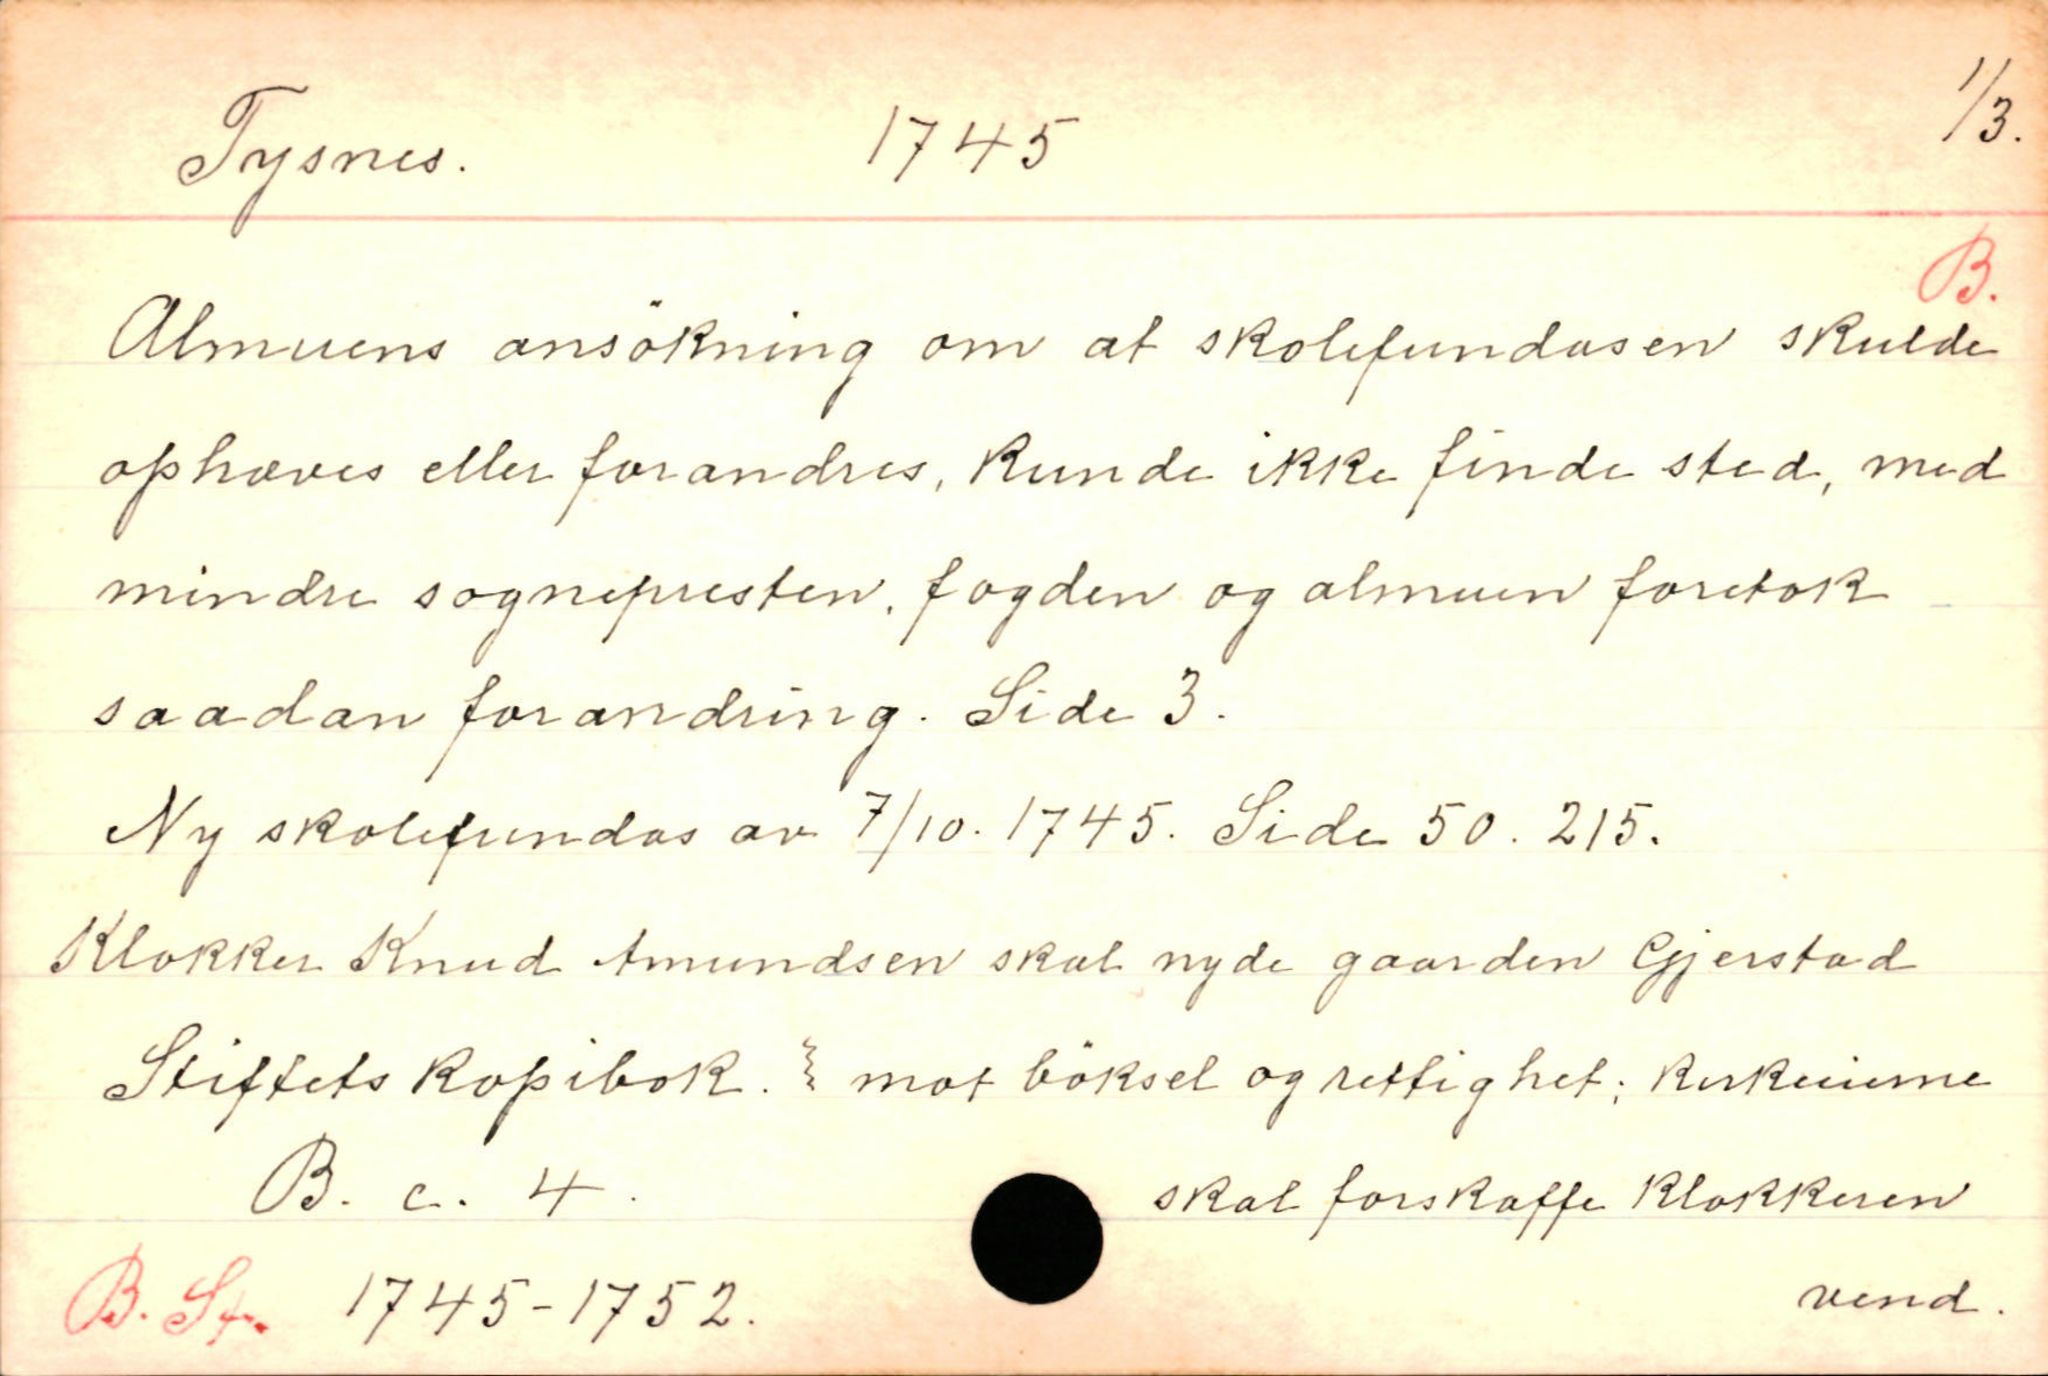 Tysnes. 1745 1/3.
B.
Almuens ansökning om at skolefundasen skulde
ophæves eller forandres, kunde ikke finde sted, med
mindre sognepresten, fogden og almuen foretok
saadan forandring. Side 3.
Ny skolefundas av 7/10. 1745. Side 50. 215.
Klokker Knud Amundsen skal nyde gaarden Gjerstad
Stiftets kopibok. mot böksel og rettighet; kirkeeierne
B. c. 4. skal forskaffe klokkeren
B. St. 1745-1752. vend.